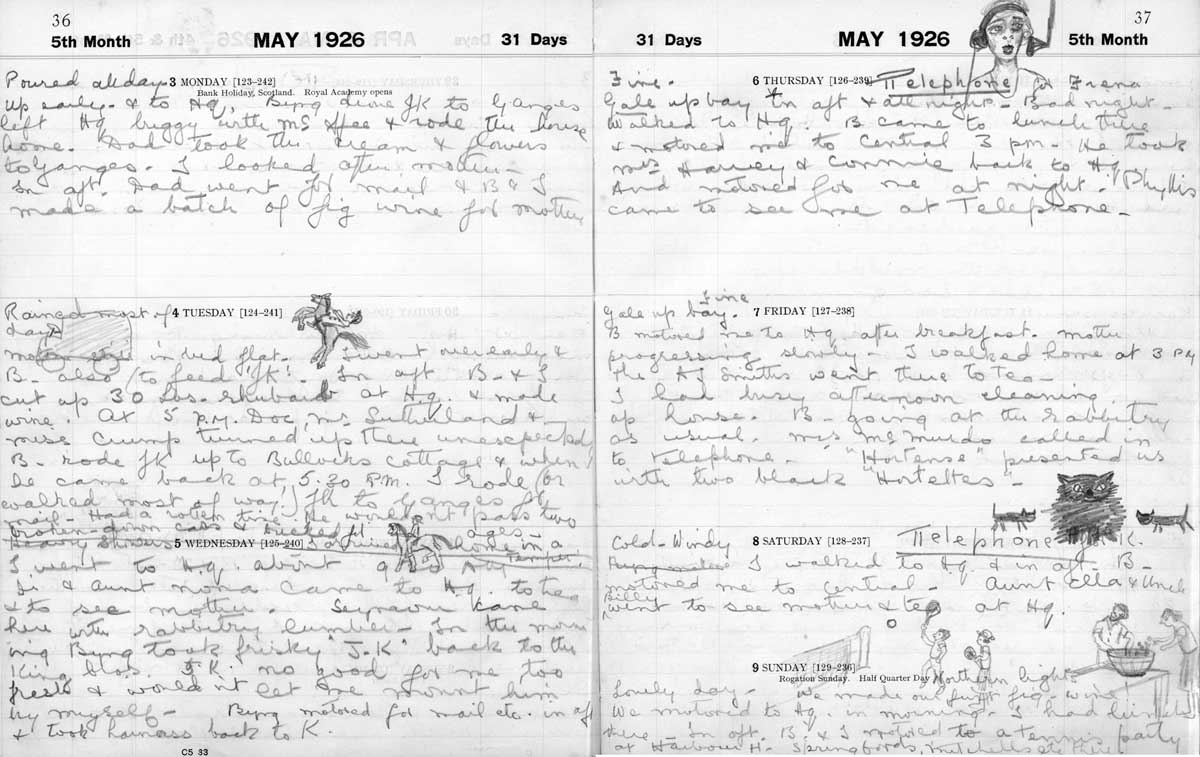 36
5th Month MAY 1926 31 Days
Poured all day 3 MONDAY [123-242]
Bank Holiday, Scotland. Royal Academy opens
up early & to Hq. Byng drove JK to Ganges
left Hq buggy with & rode the horse
home. Dad took the cream & flowers
to Ganges. I looked after mother
In aft. Dad went for mail & B & I
made a batch of fig wine for mother
Rained most of 4 TUESDAY [124-241]
day
in bed flat. I went over early &
B. also (to feed "JK". In aft B. & I
cut up 30 lbs. rhubarb at Hq. & made
wine. At 5 p.m. Doc, Mr Sutherland &
miss Crump turned up there unexpectedly
B. rode JK up to Bullocks cottage & when
he came back at 5.30 P.M. I rode (or
walked most of way) JK to Ganges for
mail - Had a rotten time he wouldn't pass two
broken down cars & ages -
5 WEDNESDAY [125-240] home in a
I went to Hq. about 9 temper.
Di & Aunt Nora came to Hq. to tea
& to see mother. Seymour came
here with rabbitry lumber - In the morn
ing Byng took frisky "J.K" back to the
King bros. J.K. no good for me too
fresh & would nt let me mount him
by myself - Byng motored for mail etc. in aft
& took harness back to K.
C5 33
37
31 Days MAY 1926 5th Month
Fine. 6 THURSDAY [126-239] Telephone for Frena
Gale up bay in aft & all night - Bad night -
Walked to Hq. B came to lunch there
& motored me to Central 3 pm - He took
Mrs Harvey & Connie back to Hq
And motored for me at night. Phyllis
came to see me at Telephone -
Fine
Gale up bay. 7 FRIDAY [127-238]
B motored me to Hq after breakfast. mother
progressing slowly - I walked home at 3 PM
The AJ Smiths went there to tea -
I had busy afternoon cleaning
up house. B - going at the rabbitry
as usual. Mrs McMurdo called in
to telephone - "Hortense" presented us
with two black "Hortettes" -
Cold - Windy 8 SATURDAY [128-237] Telephone K.
I walked to Hq & in aft B -
motored me to central - Aunt Ella & Uncle
Billie
went to see mother & tea at Hq.
9 SUNDAY [129-236]
Rogation Sunday. Half Quarter Day Northern lights
Lovely day - We made our first fig wine
We motored to Hq. in morning - I had lunch
there - In aft. B. & I motored to a tennis party
at Harbour H. Springfords, Mitchells etc there